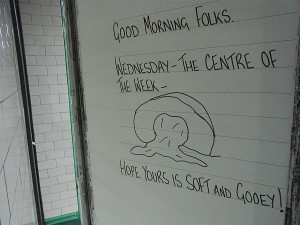 GOOD MORNING FOLKS.
WEDNESDAY - THE CENTRE OF
THE WEEK -
HOPE YOURS IS SOFT AND GOOEY!